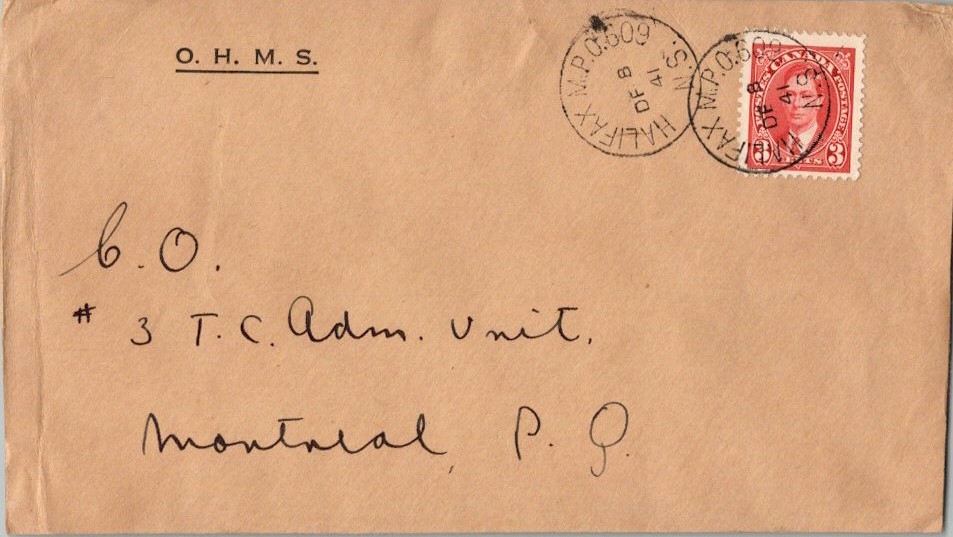 O. H. M. S.
HALIFAX M.P.O. 609 N.S.
DE 8
41
HALIFAX M.P.O. 609 N.S.
DE 8
41
CANADA POSTAGE
3 3
C. O.
# 3 T. C. Adm. Unit.
Montreal, P. Q.